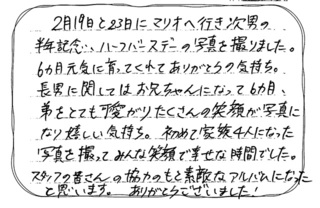 2月19日と23日にマリオへ行き次男の
半年記念、ハーフバースデーの写真を撮りました。
6カ月元気に育ってくれてありがとうの気持ち。
長男に関してはお兄ちゃんになって6カ月、
弟をとても可愛がりたくさんの笑顔が写真に
なり嬉しい気持ち。初めて家族4人になった
写真を撮ってみんな笑顔で幸せな時間でした。
スタッフの皆さんの協力のもと素敵なアルバムになった
と思います。ありがとうございました!